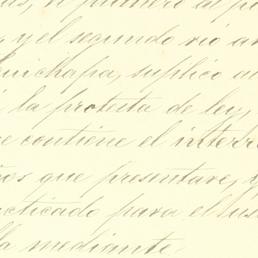 el primero al p
y el segundo rio ar
uichapa, suplico a
la protesta de ley,
e contiene el interro
os que presentare, y
cticado para el sus
la mediante